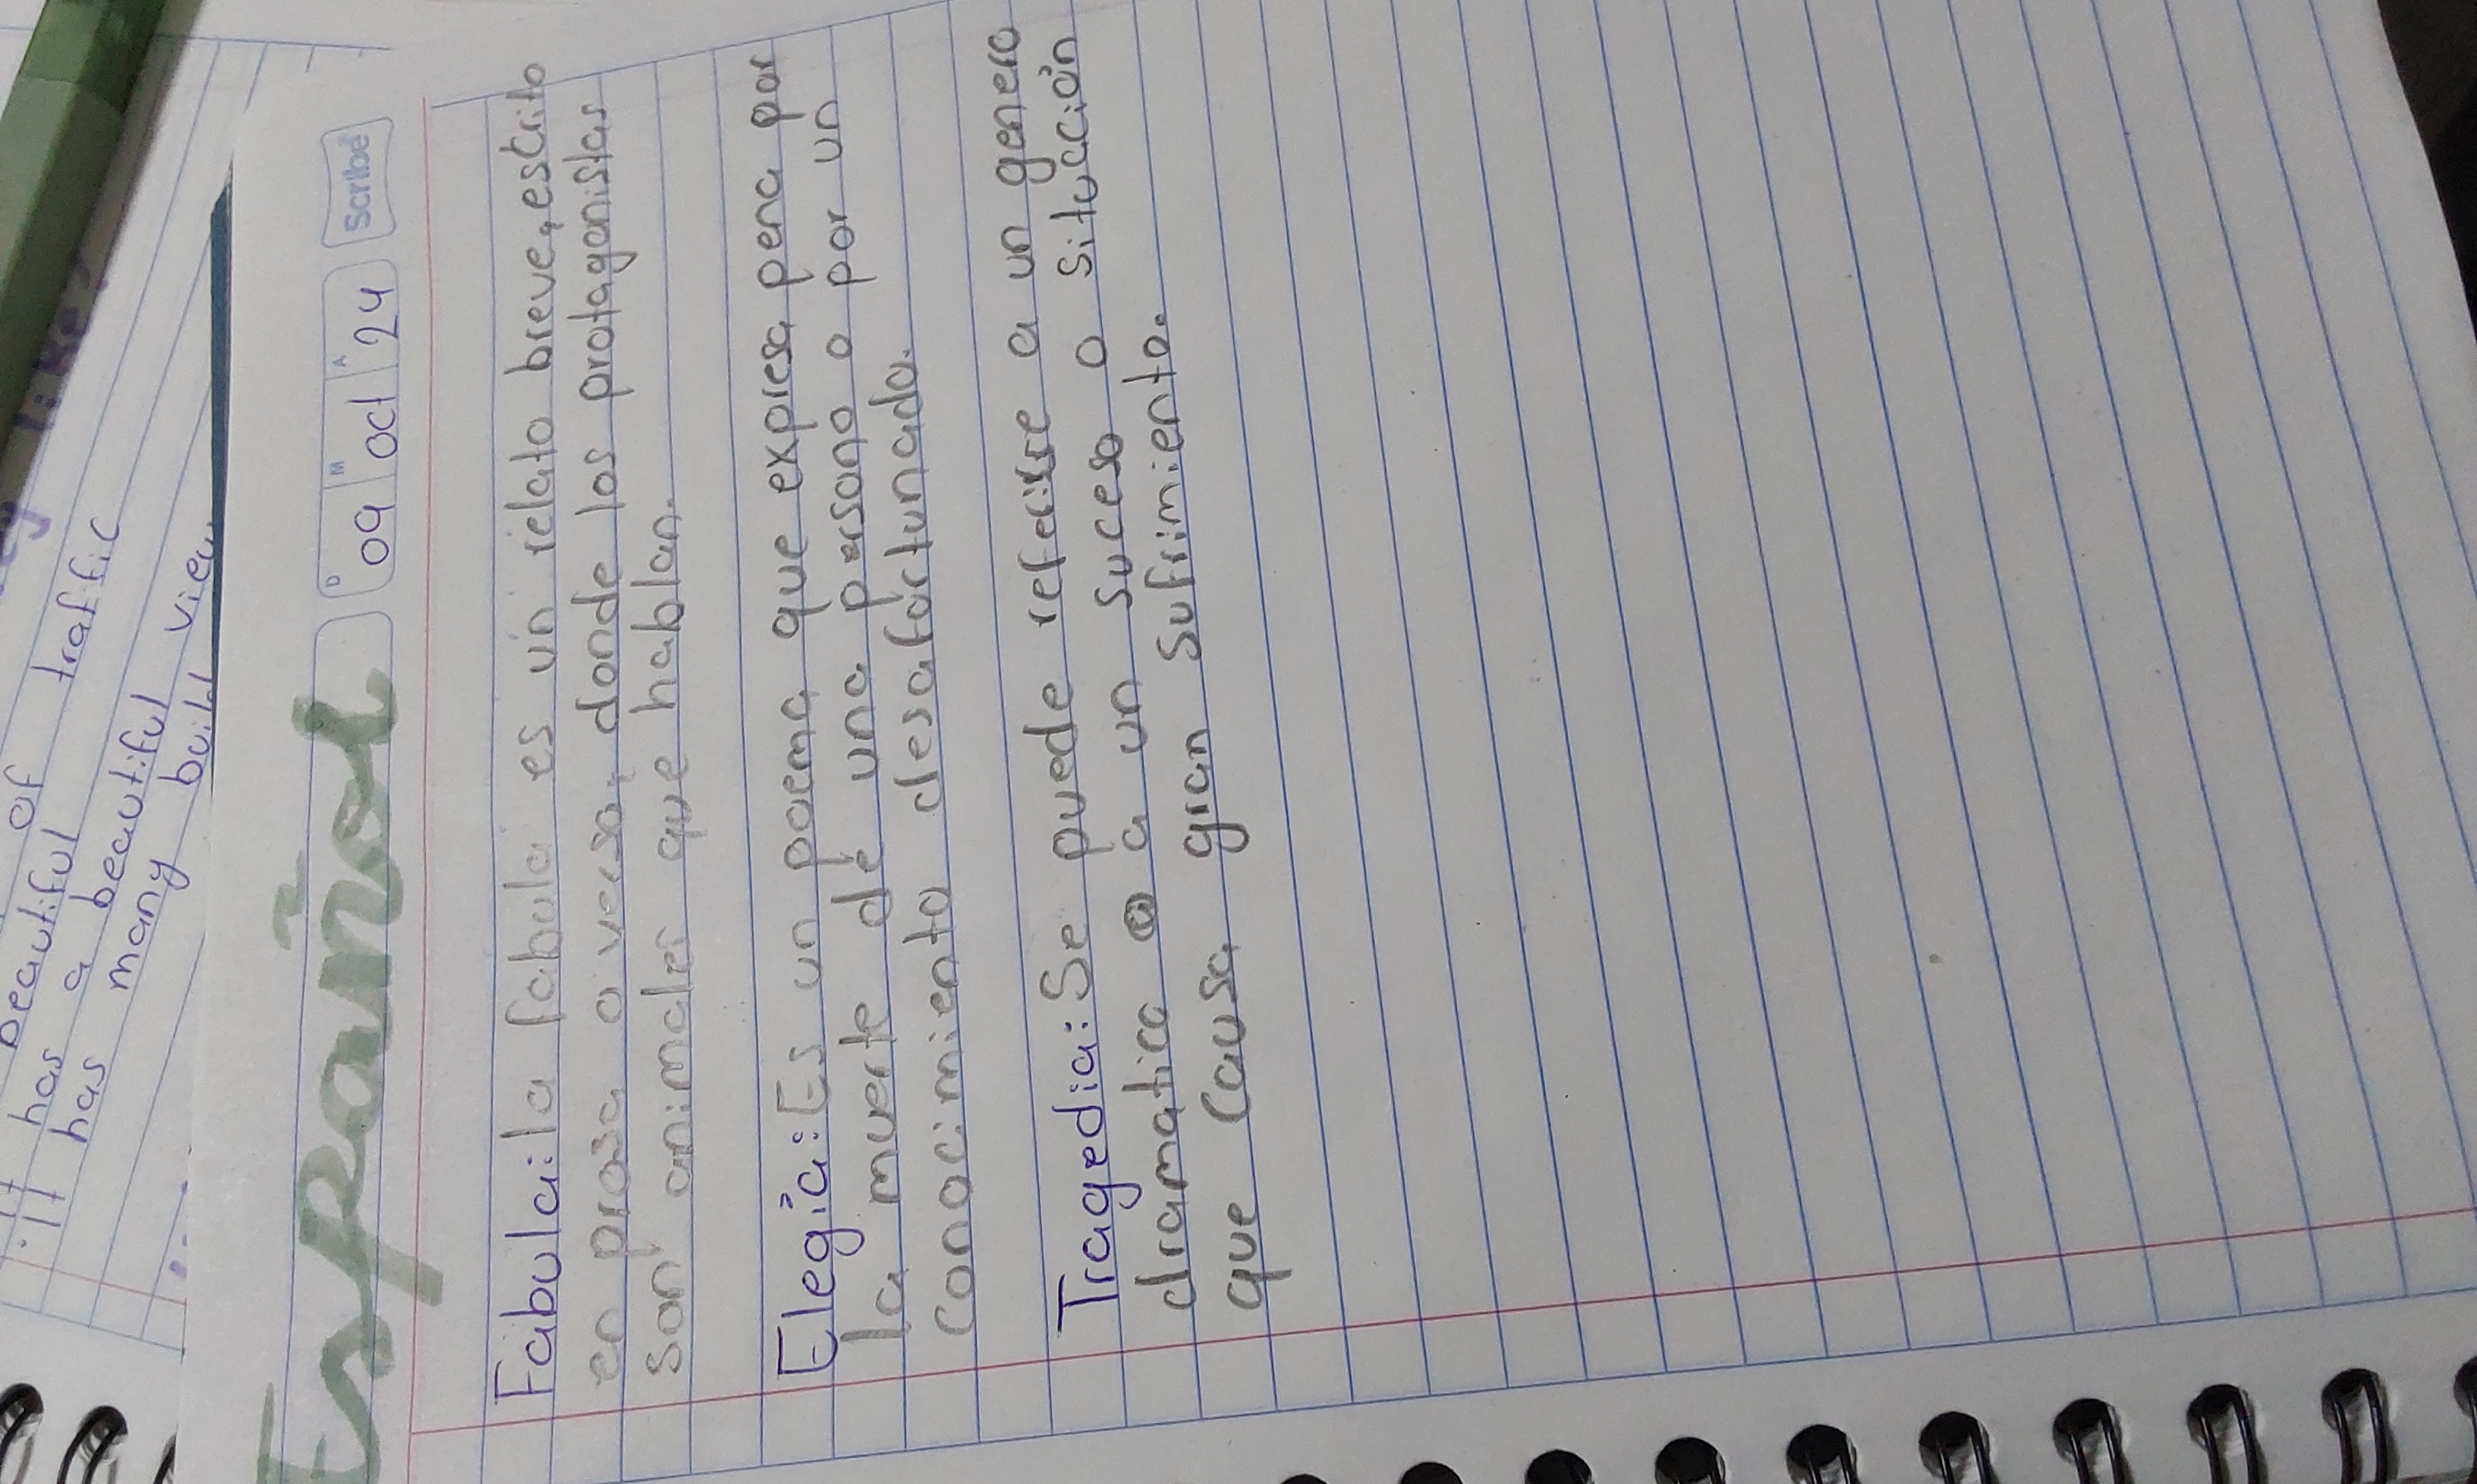 of traffic
beautiful
It has a beautiful view
has many build
Español
D M A
09 oct 24
Scribe
Fabula: la fabula es un relato breve, escrito
en prosa o verso, donde los protagonistas
son animales que hablan.
Elegia: Es un poema que expresa pena por
la muerte de una persona o por un
conocimiento desafortunado.
Tragedia: Se puede referirse a un genero
dramatico o a un suceso o situación
que causa gran sufrimiento.